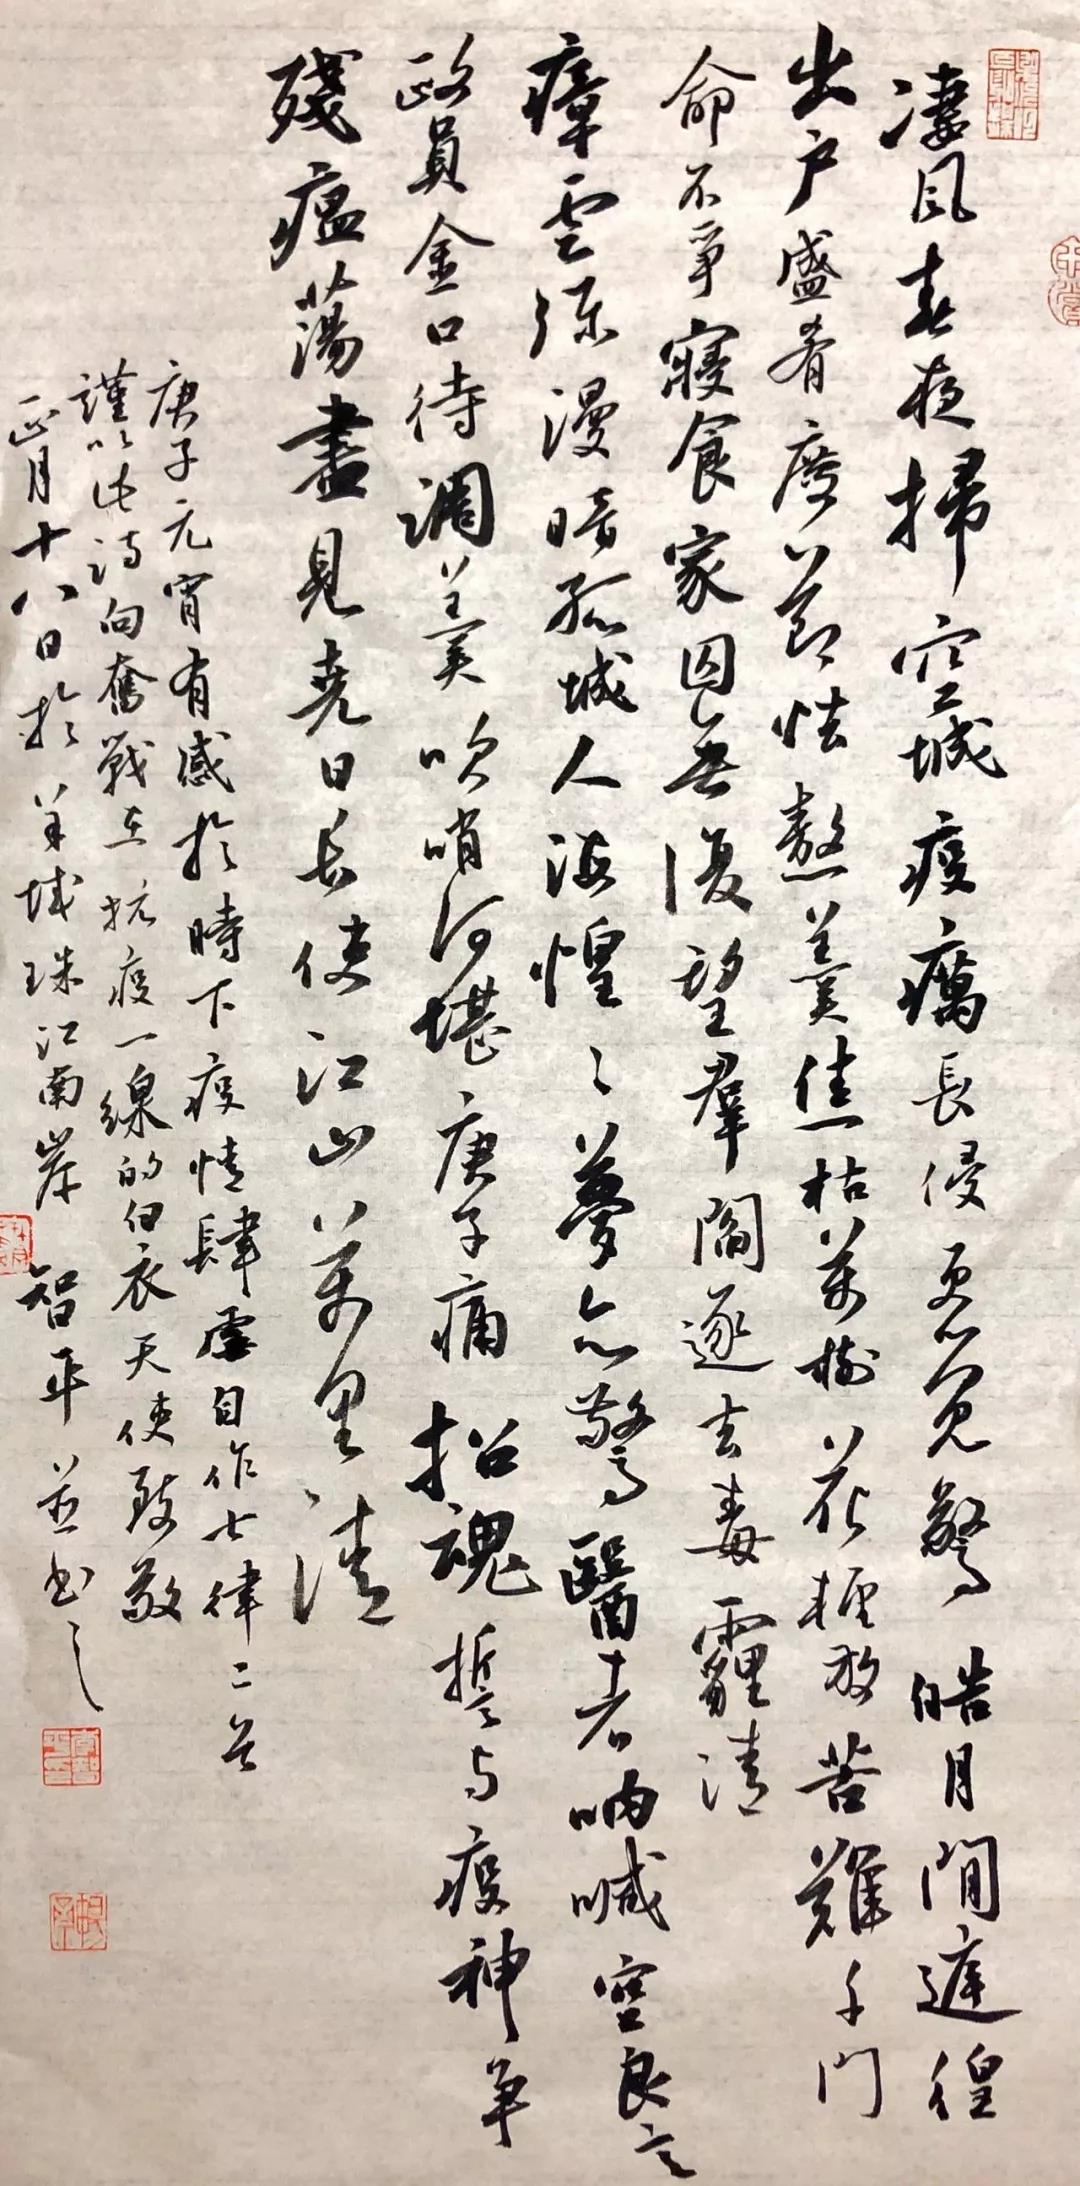 淒風春夜掃空城疫癘長侵更覺驚皓月閒庭徨
出户盛肴廢節怯熬羹焦枯萬樹花輕放苦難千門
命不爭寢食家囚無復望羣閻逐去毒霾清
瘴雲弥漫暗孤城人海惶〻夢亦驚醫者吶喊空良言
政員金口待調羹吹哨何堪庚子痛招魂誓与疫神爭
殘瘟蕩盡見堯日長使江山萬里清
庚子元宵有感於時下疫情肆虐自作七律二首
謹以此詩向奮戰在抗疫一線的白衣天使致敬
正月十八日於羊城珠江南岸智平並書之